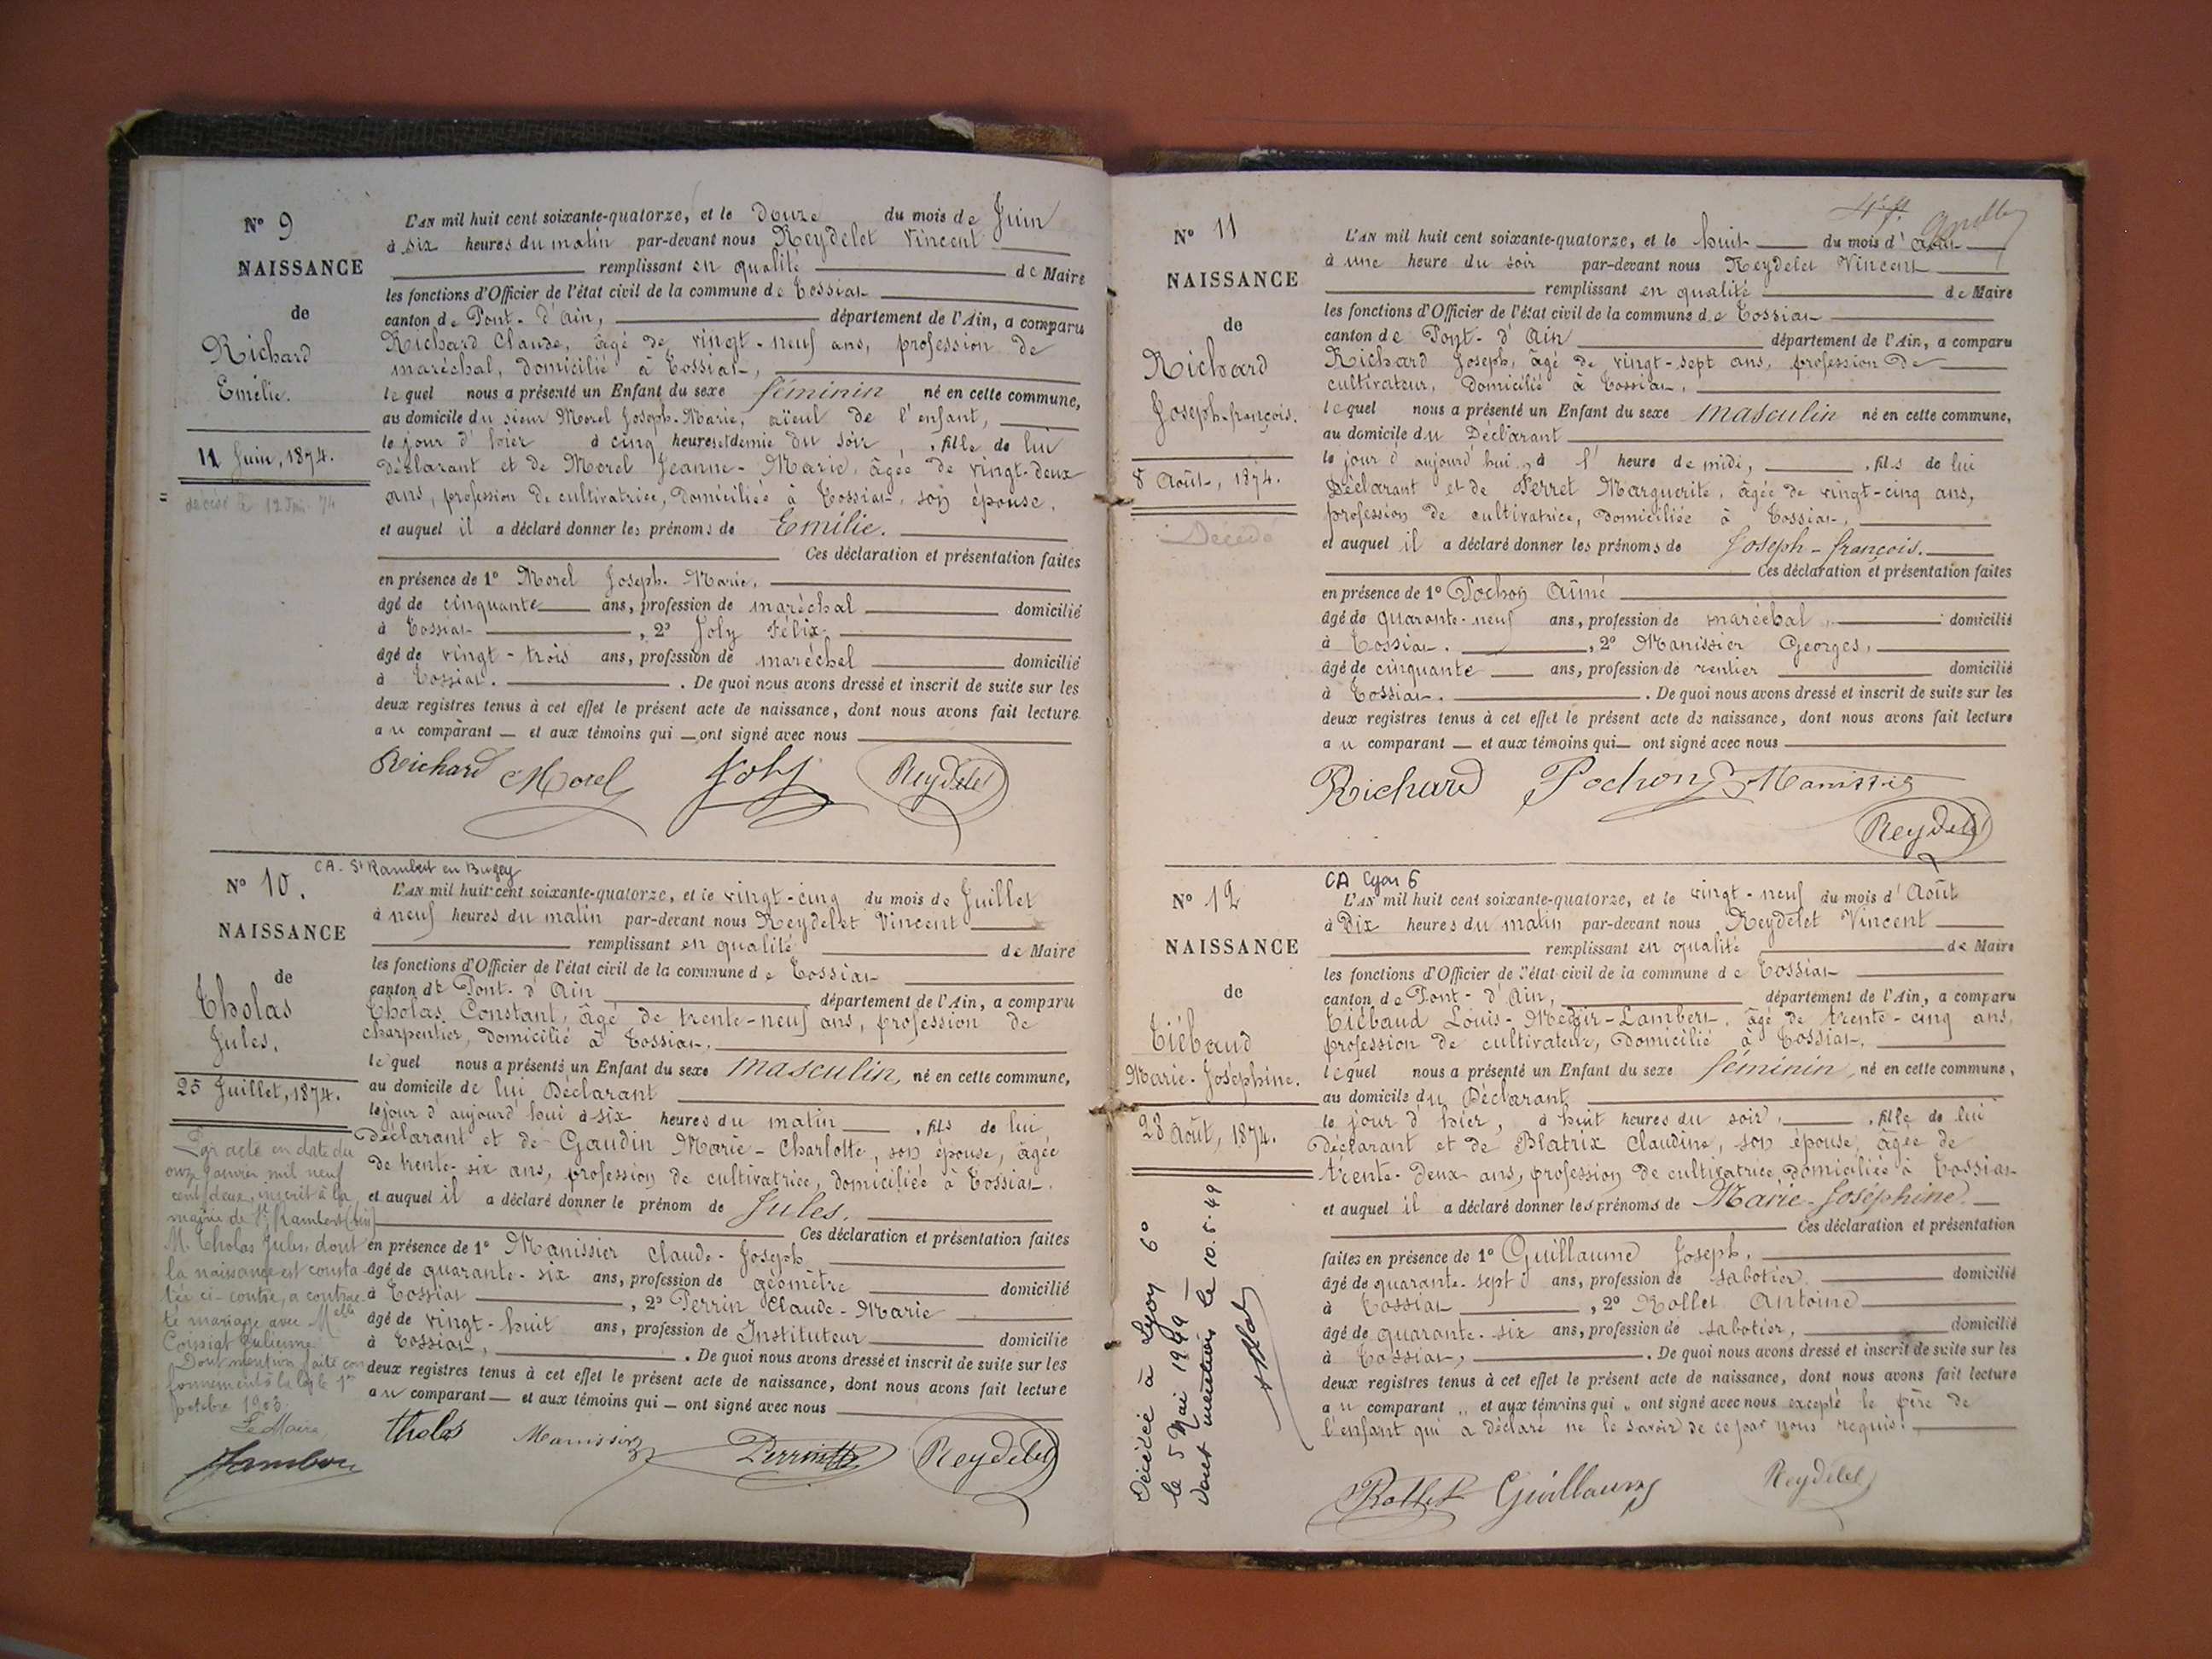 N° 9
NAISSANCE
de
Richard
Emélie.
11 Juin, 1874.
décédé le 12 Juin 74
L'AN mil huit cent soixante-quatorze, et le Douze du mois de Juin
à six heures du matin par-devant nous Reydelet Vincent
remplissant en qualité de Maire
les fonctions d'Officier de l'état civil de la commune de Tossiat
canton de Pont-d'Ain, département de l'Ain, a comparu
Richard Claude, âgé de vingt-neuf ans, profession de
maréchal, domicilié à Tossiat,
lequel nous a présenté un Enfant du sexe féminin né en cette commune,
au domicile du sieur Morel Joseph-Marie, aïeul de l'enfant,
le jour d'hier à cinq heures et demie du soir, fille de lui
déclarant et de Morel Jeanne-Marie, âgée de vingt-deux
ans, profession de cultivatrice, domiciliée à Tossiat, son épouse.
et auquel il a déclaré donner les prénoms de Emilie.
Ces déclaration et présentation faites
en présence de 1° Morel Joseph-Marie,
âgé de cinquante ans, profession de maréchal domicilié
à Tossiat, 2° Joly Félix
âgé de vingt-trois ans, profession de maréchal domicilié
à Tossiat. De quoi nous avons dressé et inscrit de suite sur les
deux registres tenus à cet effet le présent acte de naissance, dont nous avons fait lecture
au comparant et aux témoins qui ont signé avec nous
Richard Morel Joly Reydelet
N° 10.
CA. St Rambert en Bugey
NAISSANCE
de
Tholas
Jules.
25 Juillet, 1874.
Par acte en date du
onze Janvier mil neuf
cent deux, inscrit à la
mairie de St Rambert (Ain)
M. Tholas Jules, dont
la naissance est consta-
tée ci-contre, a contrac-
té mariage avec Melle
Coissiat Julienne
Dont mention faite con
formément à la loi le 1er
octobre 1903.
Le Maire,
L'AN mil huit cent soixante-quatorze, et le vingt-cinq du mois de Juillet
à neuf heures du matin par-devant nous Reydelet Vincent
remplissant en qualité de Maire
les fonctions d'Officier de l'état civil de la commune de Tossiat
canton de Pont-d'Ain département de l'Ain, a comparu
Tholas Constant, âgé de trente-neuf ans, profession de
charpentier, domicilié à Tossiat.
lequel nous a présenté un Enfant du sexe masculin, né en cette commune,
au domicile de lui Déclarant
le jour d'aujourd'hui à six heures du matin, fils de lui
Déclarant et de Gaudin Marie-Charlotte, son épouse, âgée
de trente-six ans, profession de cultivatrice, domiciliée à Tossiat.
et auquel il a déclaré donner le prénom de Jules.
Ces déclaration et présentation faites
en présence de 1° Manissier Claude-Joseph
âgé de quarante-six ans, profession de géomètre domicilié
à Tossiat, 2° Perrin Claude-Marie
âgé de vingt-huit ans, profession de Instituteur domicilié
à Tossiat, De quoi nous avons dressé et inscrit de suite sur les
deux registres tenus à cet effet le présent acte de naissance, dont nous avons fait lecture
au comparant et aux témoins qui ont signé avec nous
tholas Manissier Perrin Reydelet
N° 11
NAISSANCE
de
Richard
Joseph-françois.
8 Août, 1874.
Décédé
L'AN mil huit cent soixante-quatorze, et le huit du mois d'Août
à une heure du soir par-devant nous Reydelet Vincent
remplissant en qualité de Maire
les fonctions d'Officier de l'état civil de la commune de Tossiat
canton de Pont-d'Ain département de l'Ain, a comparu
Richard Joseph, âgé de vingt-sept ans, profession de
cultivateur, domicilié à Tossiat,
lequel nous a présenté un Enfant du sexe masculin né en cette commune,
au domicile du Déclarant
le jour d'aujourd'hui, à l'heure de midi, fils de lui
Déclarant et de Perret Marguerite, âgée de vingt-cinq ans,
profession de cultivatrice, domiciliée à Tossiat,
et auquel il a déclaré donner les prénoms de Joseph-françois.
Ces déclaration et présentation faites
en présence de 1° Pochon Aimé
âgé de quarante-neuf ans, profession de maréchal, domicilié
à Tossiat. , 2° Manissier Georges,
âgé de cinquante ans, profession de rentier domicilié
à Tossiat. De quoi nous avons dressé et inscrit de suite sur les
deux registres tenus à cet effet le présent acte de naissance, dont nous avons fait lecture
au comparant et aux témoins qui ont signé avec nous
Richard Pochon Manissier
Reydelet
N° 12
CA Lyon 6
NAISSANCE
de
Tiébaud
Marie-Joséphine.
28 Août, 1874.
Décédée à Lyon 6°
le 5 Mai 1949
dont mention le 10.5.49
L'AN mil huit cent soixante-quatorze, et le vingt-neuf du mois d'Août
à Dix heures du matin par-devant nous Reydelet Vincent
remplissant en qualité de Maire
les fonctions d'Officier de l'état civil de la commune de Tossiat
canton de Pont-d'Ain, département de l'Ain, a comparu
Tiébaud Louis-Lambert, âgé de trente-cinq ans,
profession de cultivateur, domicilié à Tossiat.
lequel nous a présenté un Enfant du sexe féminin, né en cette commune,
au domicile du Déclarant
le jour d'hier, à huit heures du soir, fille de lui
Déclarant et de Blatrix Claudine, son épouse, âgée de
trente-deux ans, profession de cultivatrice, domiciliée à Tossiat
et auquel il a déclaré donner les prénoms de Marie-Joséphine.
Ces déclaration et présentation
faites en présence de 1° Guillaume Joseph,
âgé de quarante-sept ans, profession de sabotier domicilié
à Tossiat, 2° Rollet Antoine
âgé de quarante-six ans, profession de sabotier, domicilié
à Tossiat, De quoi nous avons dressé et inscrit de suite sur les
deux registres tenus à cet effet le présent acte de naissance, dont nous avons fait lecture
au comparant et aux témoins qui ont signé avec nous excepté le père de
l'enfant qui a déclaré ne le savoir de ce par nous requis.
Rollet Guillaume Reydelet